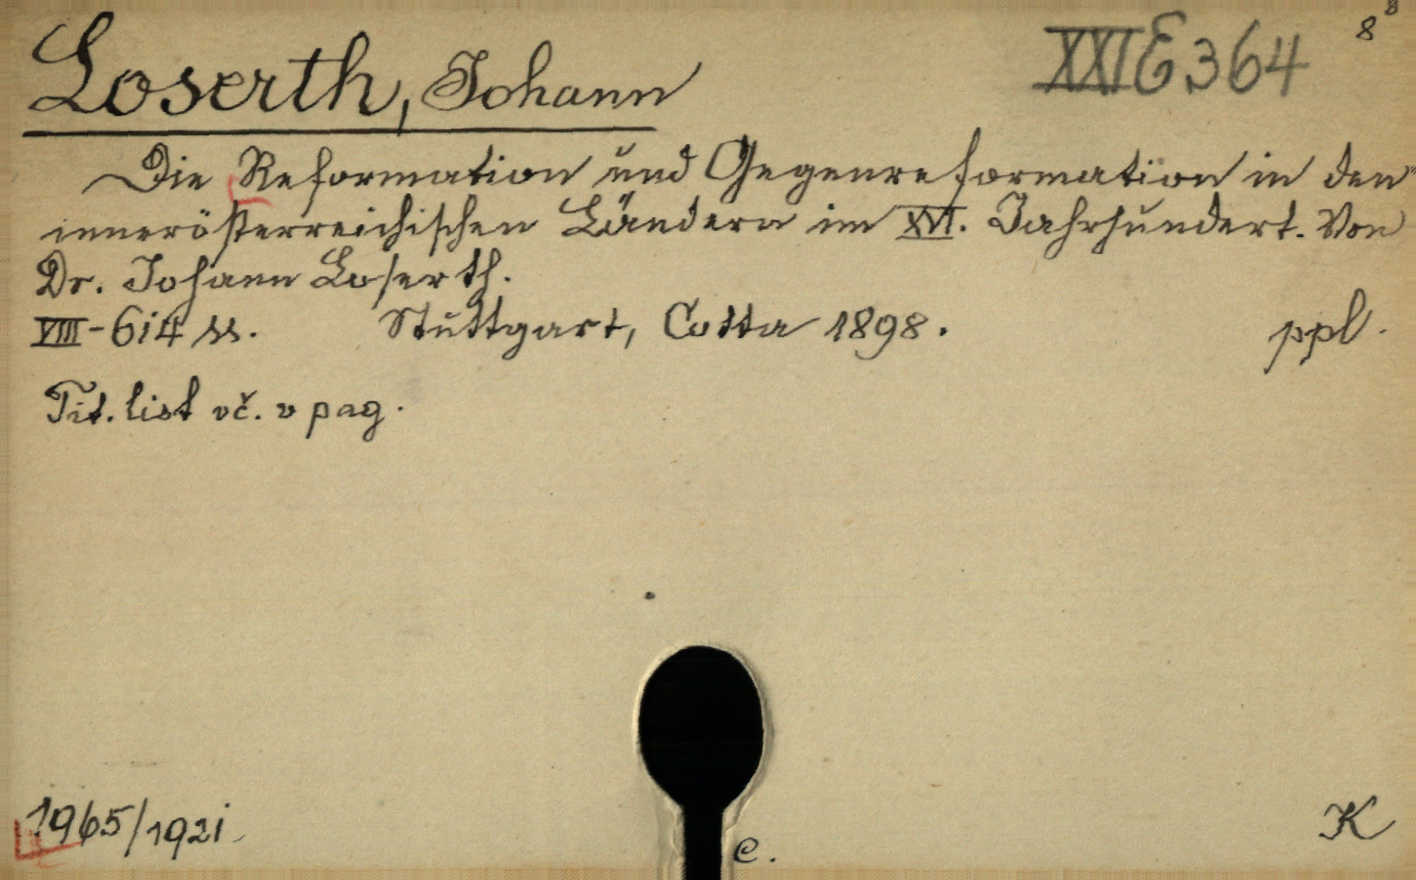 Loserth, Johann
XXI E 364
8⁸
Die Reformation und Gegenreformation in den
innerösterreichischen Ländern im XVI. Jahrhundert. Von
Dr. Johann Loserth.
VIII-614 ss. Stuttgart, Cotta 1898. ppl.
Tit. list vč. v pag.
1965/1921
e.
K